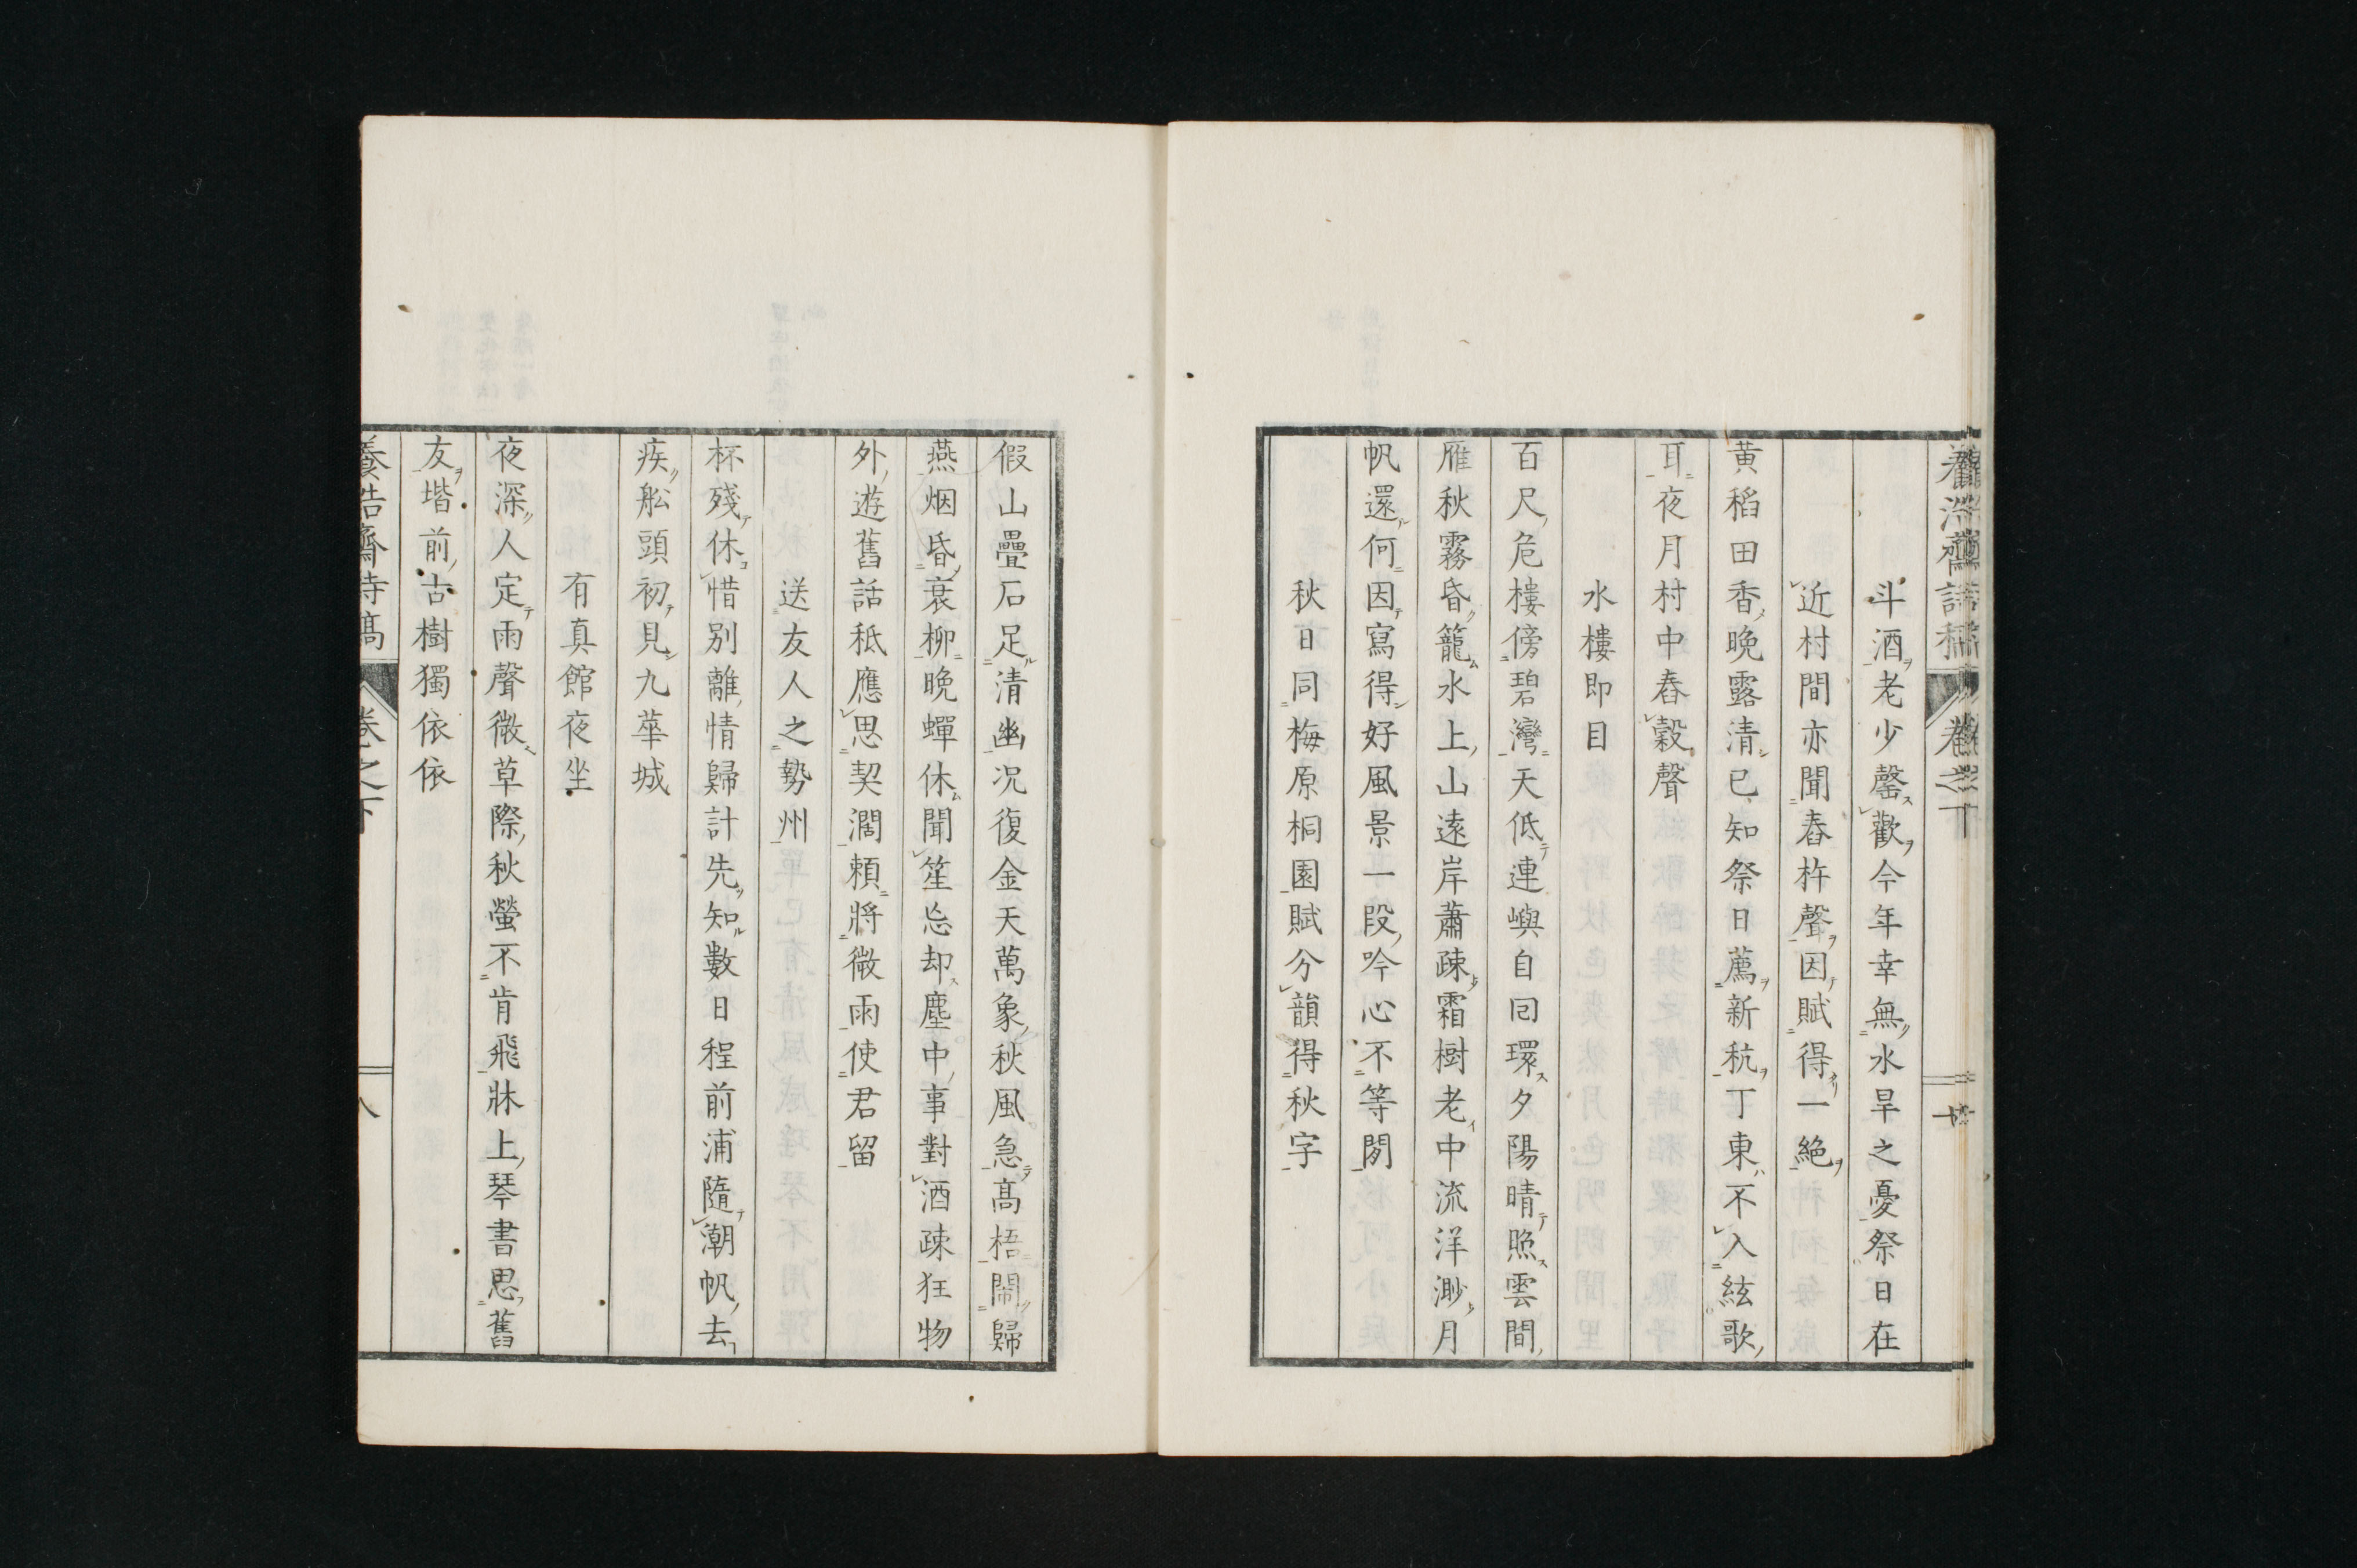 斗酒老少罄歡今年幸無水旱之憂祭日在
近村間亦聞舂杵聲因賦得一絶
黄稻田香晩露清已知祭日薦新秔丁東不入絃歌
耳夜月村中舂穀聲
水樓即目
百尺危樓傍碧灣天低連嶼自回環夕陽晴照雲間
雁秋霧昏籠水上山遠岸蕭疎霜樹老中流洋渺月
帆還何因寫得好風景一段吟心不等閒
秋日同梅原桐園賦分韻得秋字
假山疊石足清幽况復金天萬象秋風急高梧閙歸
燕烟昏衰柳晩蟬休聞笙忘却塵中事對酒疎狂物
外遊舊話秖應思契濶頼將微雨使君留
送友人之勢州
杯殘休惜別離情歸計先知數日程前浦隨潮帆去
疾舩頭初見九華城
有真館夜坐
夜深人定雨聲微草際秋螢不肯飛牀上琴書思舊
友堦前古樹獨依依
養浩齋詩稿 卷之下 八